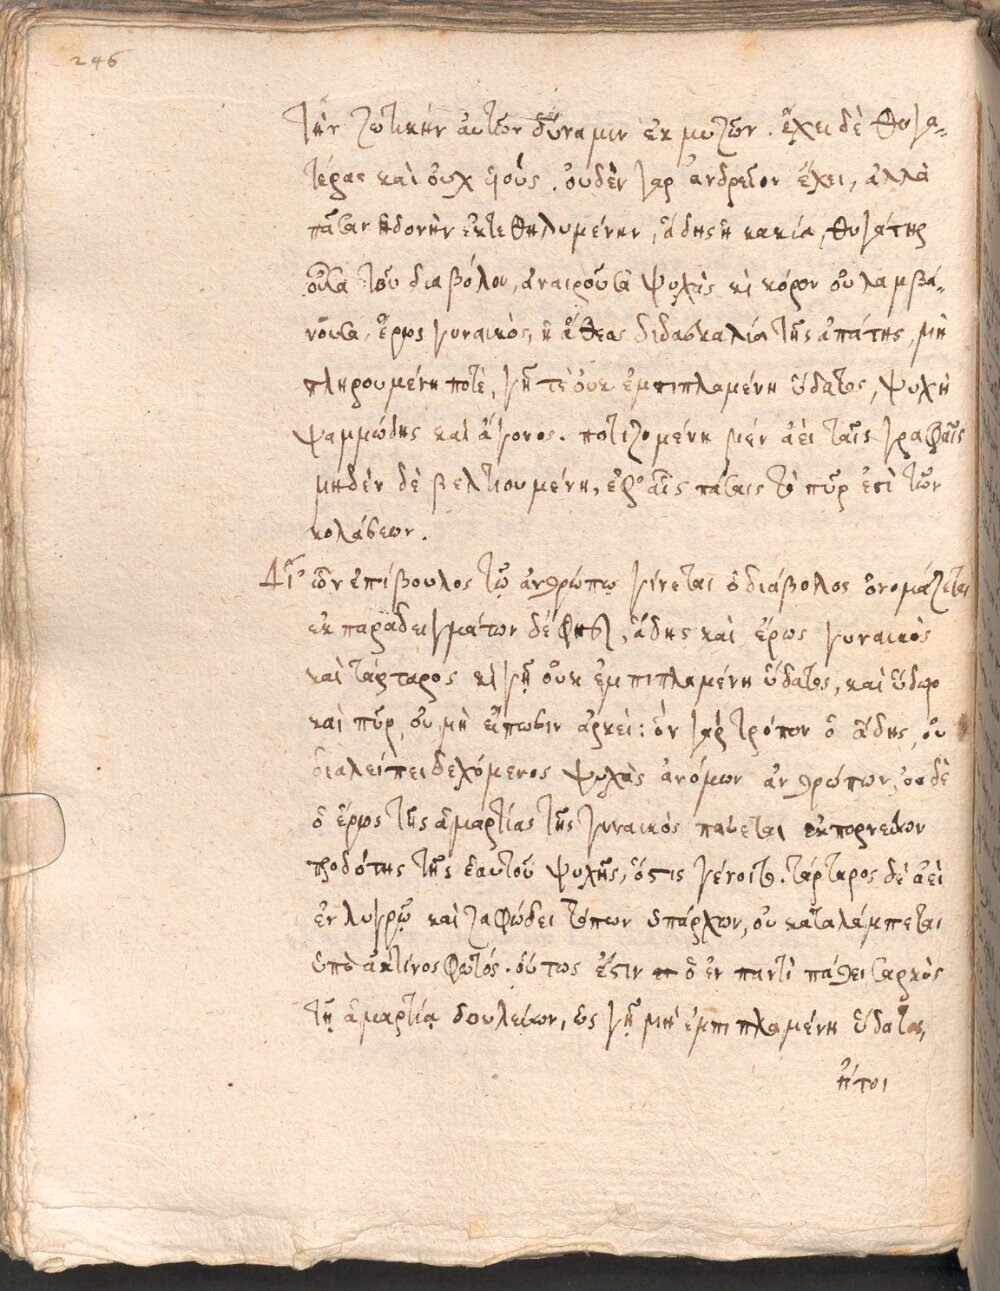 246
τὴν ζωτικὴν αὐτῶν δύναμιν ἐκμυζῶν. ἔχει δὲ θυγα-
τέρας καὶ οὐχ υἱούς. οὐδὲν γὰρ ἀνδρεῖον ἔχει, ἀλλὰ
πᾶσαν ἡδονὴν ἐκτεθηλυμένην, ἅδης ἡ κακία, θυγάτηρ
οὖσα τοῦ διαβόλου, ἀναιροῦσα ψυχὰς κὶ κόρον οὐ λαμβά-
νουσα, ἔρως γυναικός, ἡ ἄθεος διδασκαλία τῆς ἀπάτης, μὴ
πληρουμένη ποτὲ, γῆ τὲ οὐκ ἐμπιπλαμένη ὕδατος, ψυχὴ
ψαμμώδης καὶ ἄγονος. ποτιζομένη μὲν ἀεὶ ταῖς γραφαῖς
μηδὲν δὲ βελτιουμένη, ἐφ' αἷς πάσαις τὸ πῦρ ἐπὶ τῶν
κολάσεων.
Δι' ὧν ἐπίβουλος τῷ ἀνθρώπῳ γίνεται ὁ διάβολος ὀνομάζεται
ἐκ παραδειγμάτων δέ φησι, ἅδης καὶ ἔρως γυναικὸς
καὶ τάρταρος κὶ γῆ οὐκ ἐμπιπλαμένη ὕδατος, καὶ ὕδωρ
καὶ πῦρ, οὐ μὴ εἴπωσιν ἀρκεῖ: ὃν γὰρ τρόπον ὁ ἅδης οὐ
διαλείπει δεχόμενος ψυχὰς ἀνόμων ἀνθρώπων, οὐδὲ
ὁ ἔρως τῆς ἁμαρτίας τῆς γυναικός παύεται ἐκπορνεύων
προδότης τῆς ἑαυτοῦ ψυχῆς, ὅστις γένοιτο. τάρταρος δὲ ἀεὶ
ἐν λυγρῷ καὶ ζαφώδει τόπων ὑπάρχων, οὐ καταλάμπεται
ὑπὸ ἀκτῖνος φωτός. οὕτως ἔστιν ὁ ἐν παντὶ πάθει σαρκὸς
τῇ ἁμαρτίᾳ δουλεύων, ὡς γῆ μὴ ἐμπιπλαμένη ὕδατος,
ἤτοι